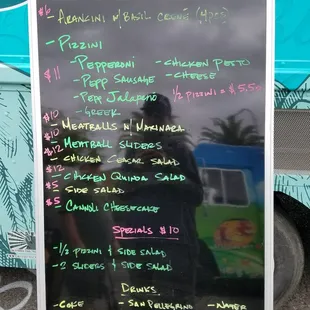 $6 - Arancini w/ Basil Creme (4pcs)
- Pizzini
- Pepperoni - Chicken Pesto
$11 - Pepp Sausage - Cheese
- Pepp Jalapeño 1/2 Pizzini = $5.50
- Greek
$10 - Meatballs w/ Marinara
$10 - Meatball Sliders
$12 - Chicken Caesar Salad
$12 - Chicken Quinoa Salad
$5 - Side Salad
$5 - Cannoli Cheesecake
Specials $10
- 1/2 Pizzini & Side Salad
- 2 Sliders & Side Salad
Drinks
- Coke - San Pellegrino - Water